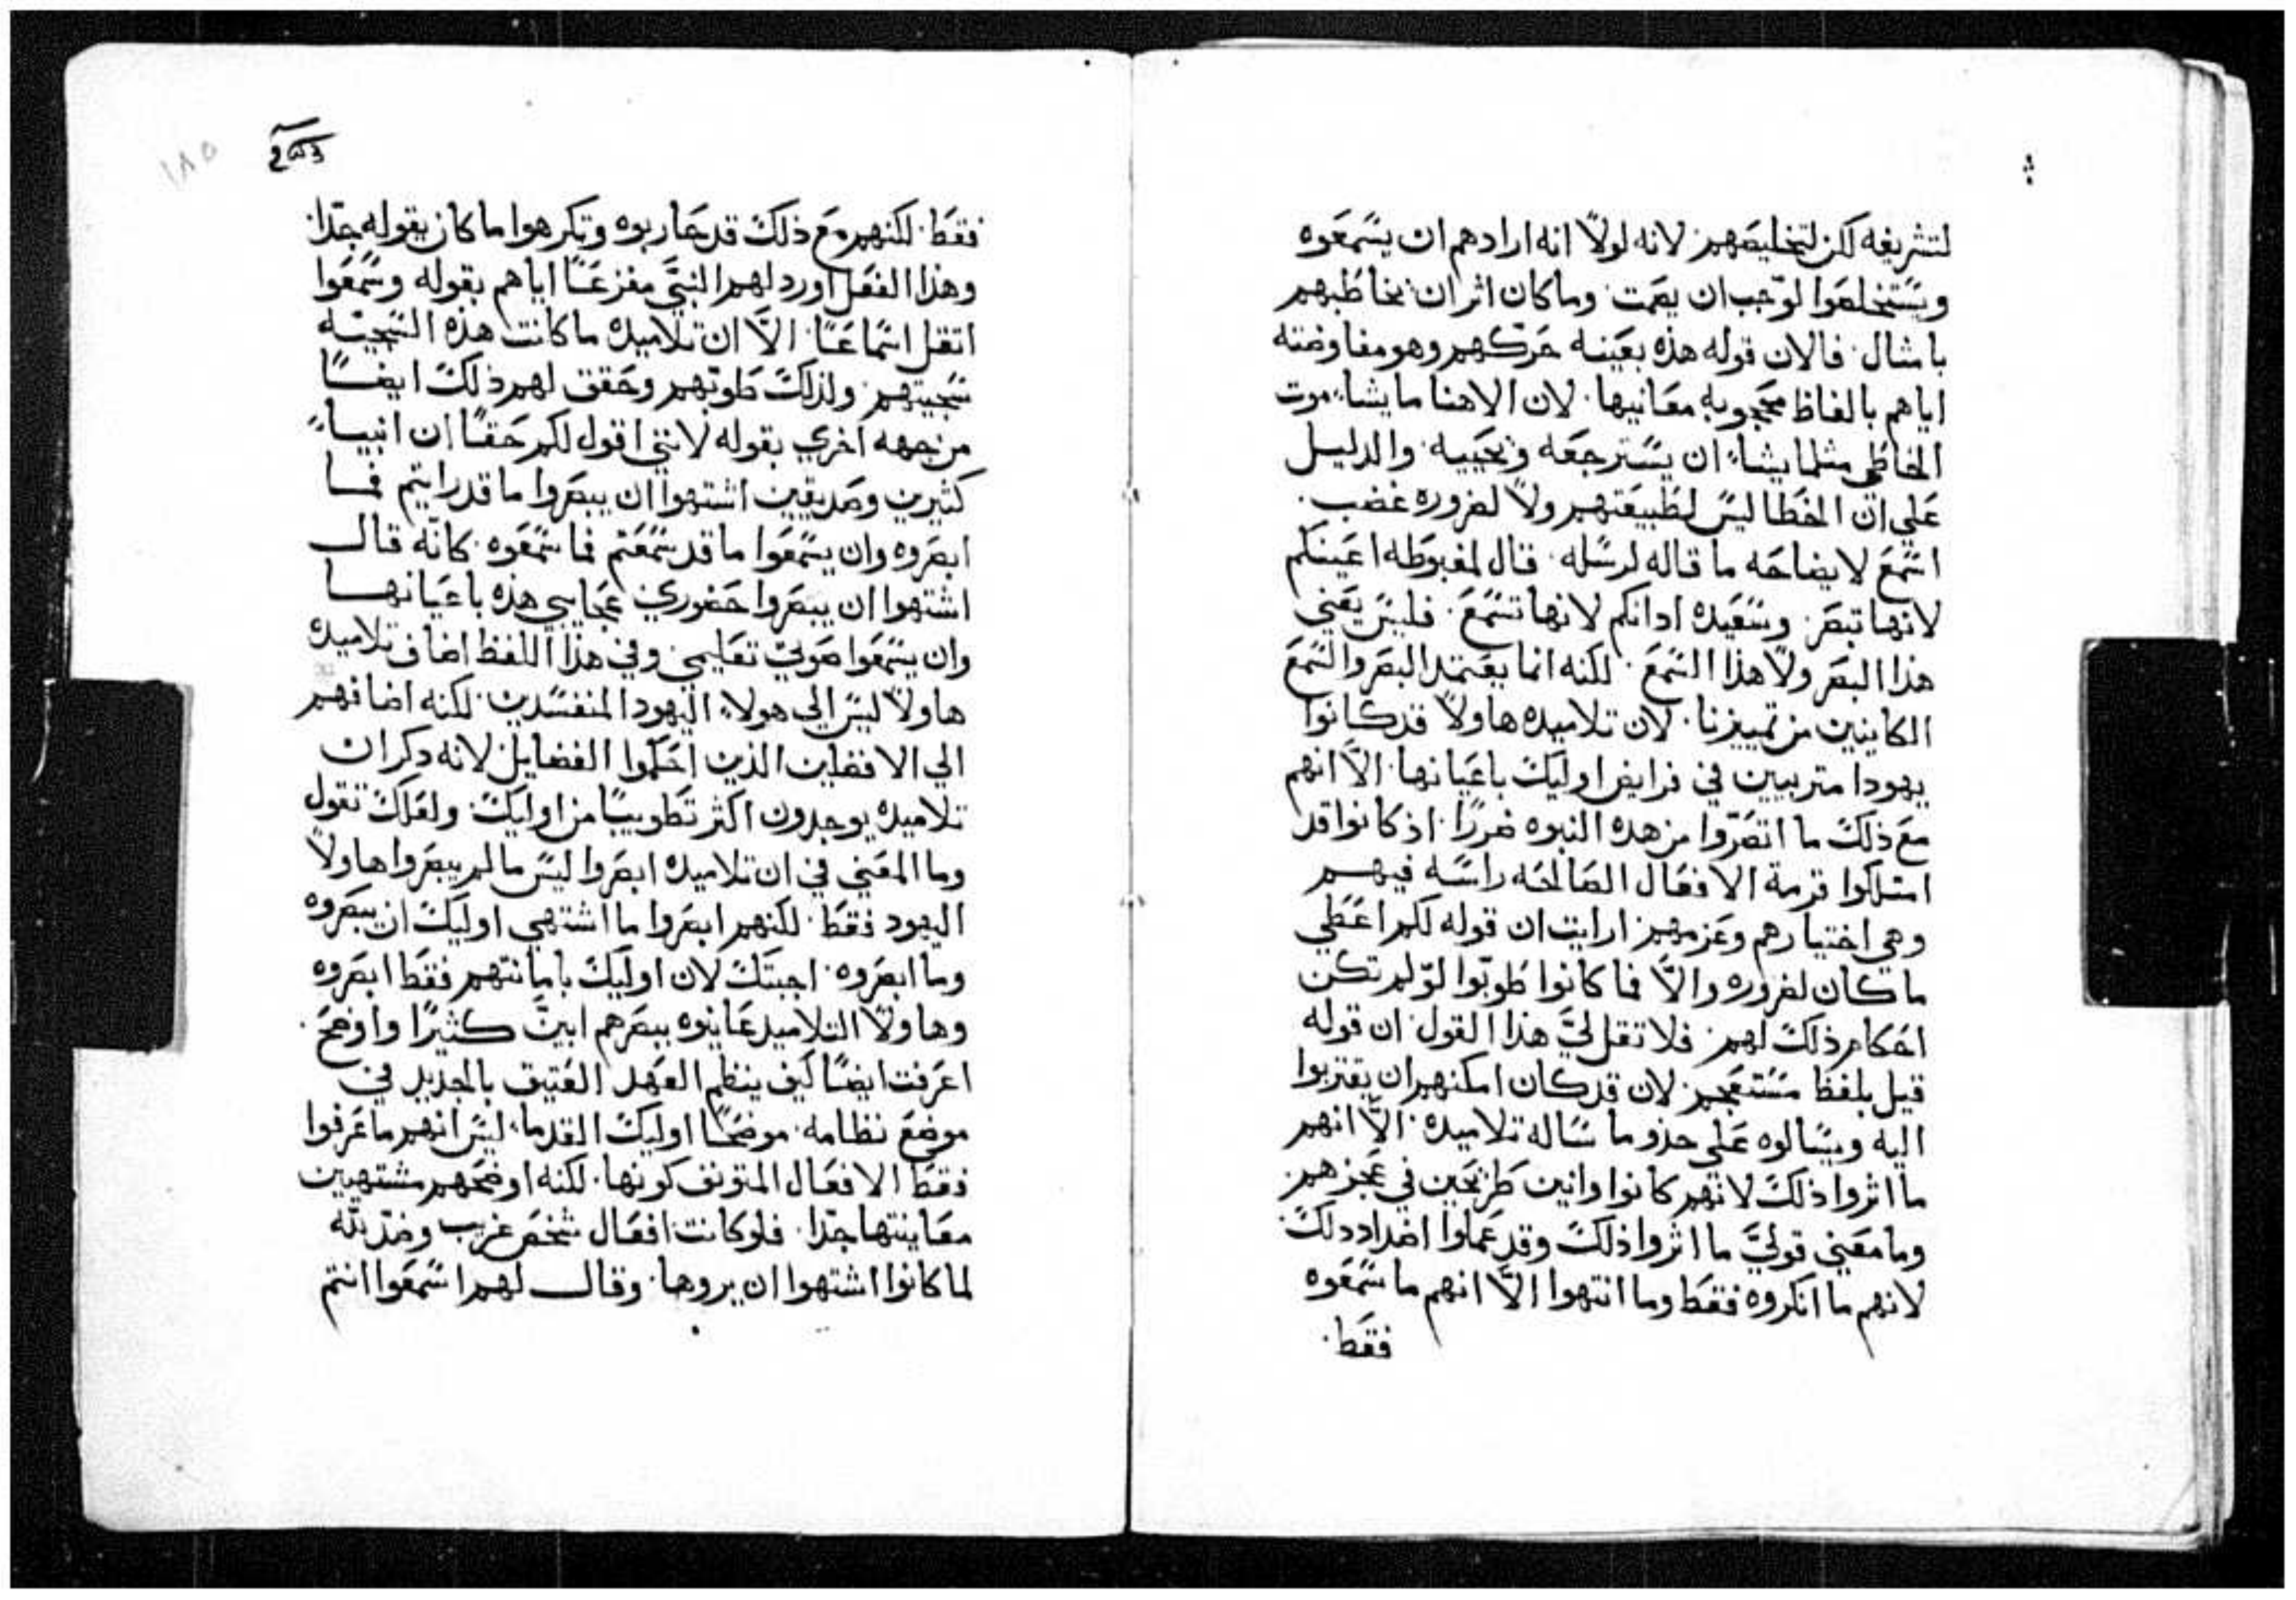 لتشريفه لكن لتخليصهم لانه لولا انه ارادهم ان يسمعوه
ويستخلصوا لوجب ان يصمت وما كان اثر ان يخاطبهم
بامثال فالان قوله هذه بعينه حركهم وهو مفاوضته
اياهم بالفاظ محجوبه معانيها لان الاهنا ما يشاء موت
الخاطي مثلما يشاء ان يسترجعه ويحييه والدليل
علي ان الخطا ليس لطبيعتهم ولا لضروره غضب
اسمع لايضاحه ما قاله لرسله قال لمغبوطه اعينكم
لانها تبصر وسعيده ادانكم لانها تسمع فليس يعني
هذا البصر ولا هذا السمع لكنه انما يعتمد البصر والسمع
الكاينين من تمييزنا لان تلاميده هاولا قد كانوا
يهودا متربيين في فرايض اوليك باعيانها الا انهم
مع ذلك ما اتضروا من هده النبوه ضررا اذ كانوا قد
امتلكوا قرمة الافعال الصالحه راسه فيهم
وهي اختيارهم وعزمهم ارايت ان قوله لكم اعطي
ما كان لضروره والا فما كانوا طوبوا لو لم تكن
احكام ذلك لهم فلا تقل لي هذا القول ان قوله
قيل بلفظ مستعجم لان قد كان امكنهم ان يقتربوا
اليه ويسالوه علي حذو ما ساله تلاميده الا انهم
ما اثروا ذلك لانهم كانوا وانين طريحين في عجزهم
وما معني قولي ما اثروا ذلك وقد عملوا اضداد دلك
لانهم ما انكروه فقط وما انتهوا الا انهم ما سمعوه
فقط
١٨٥
فقط لكنهم مع ذلك قد حاربوه وتكرهوا ما كان يقوله جدا
وهذا الفعل اورد لهم النبي مفزعا اياهم بقوله وسمعوا
اتقل استماعا الا ان تلاميده ما كانت هذه السجيه
سجيتهم ولذلك طوبهم وحقق لهم ذلك ايضا
من جهه اخري بقوله لانني اقول لكم حقا ان انبياء
كثيرين وصديقين اشتهوا ان يبصروا ما قد رايتم فما
ابصروه وان يسمعوا ما قد سمعتم فما سمعوه كانه قال
اشتهوا ان يبصروا حضوري عجايبي هذه باعيانها
وان يسمعوا صوتي تعليمي وفي هذا اللفظ اضاف تلاميده
هاولا ليس الي هولاء اليهود المنفسدين لكنه اضافهم
الي الافضلين الذين احكموا الفضايل لانه دكر ان
تلاميده يوجدون اكثر تطويبا من اوليك ولعلك تقول
وما المعني في ان تلاميده ابصروا ليس ما لم يبصروا هاولا
اليهود فقط لكنهم ابصروا ما اشتهي اوليك ان يبصروه
وما ابصروه اجبتك لان اوليك بامانتهم فقط ابصروه
وهاولا التلاميد عاينوه ببصرهم ابين كثيرا واوضح
اعرفت ايضا كيف ينظم العهد العتيق بالجديد في
موضع نظامه موضحا اوليك القدماء ليس انهم ما عرفوا
فقط الافعال المتوقف كونها لكنه اوضحهم مشتهيين
معاينتها جدا فلو كانت افعال شخص غريب وضد لله
لما كانوا اشتهوا ان يروها وقال لهم اسمعوا انتم